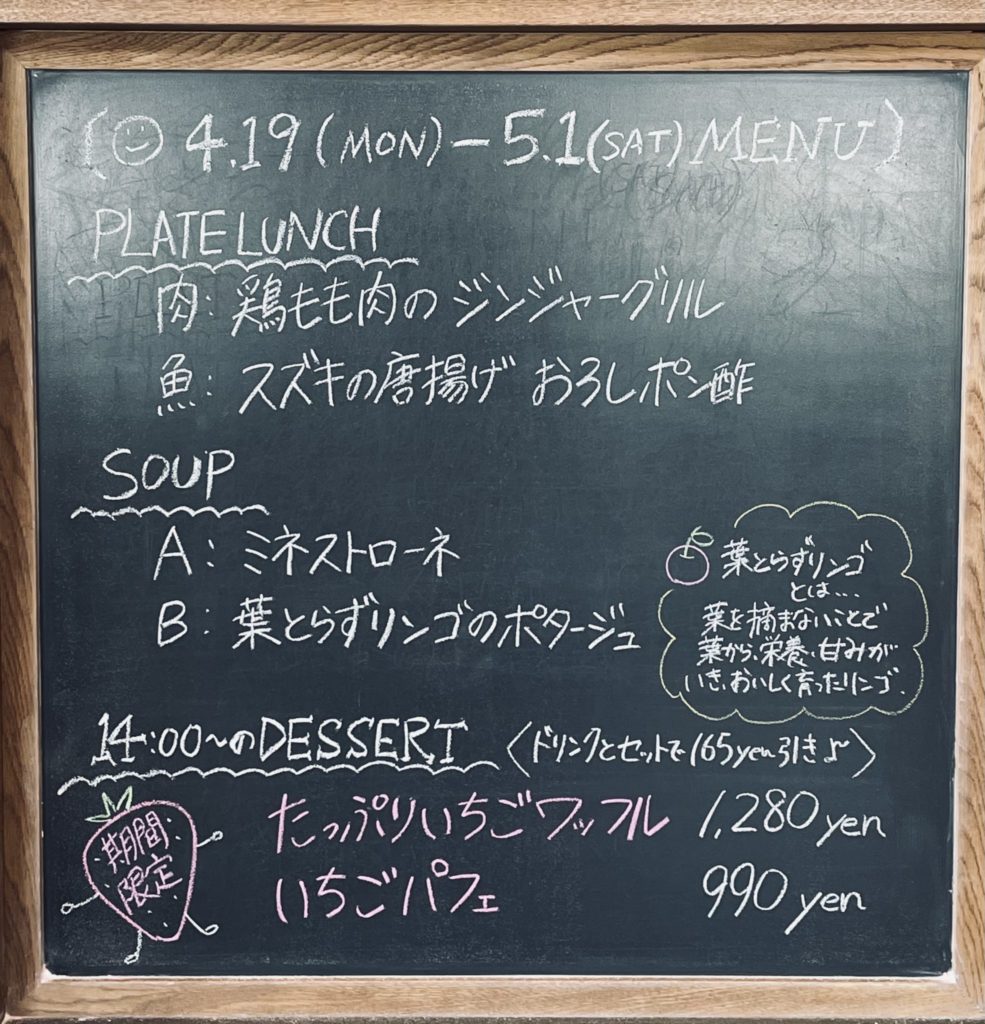 (☺ 4.19(MON)-5.1(SAT) MENU)
PLATE LUNCH
肉:鶏もも肉のジンジャーグリル
魚:スズキの唐揚げ おろしポン酢
SOUP
A:ミネストローネ
B:葉とらずリンゴのポタージュ
葉とらずリンゴ
とは...
葉を摘まないことで
葉から、栄養、甘みが
いき、おいしく育ったリンゴ.
14:00~のDESSERT 〈ドリンクとセットで165yen引き♪〉
期間
限定
たっぷりいちごワッフル 1,280 yen
いちごパフェ 990 yen